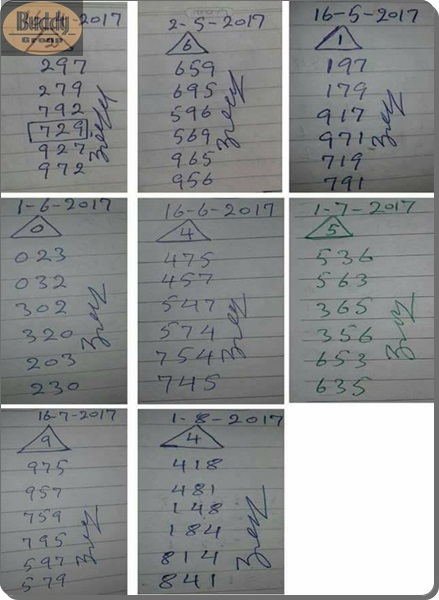 Buddy
Group
-2017
297
279
792
729
927
972
2-5-2017
6
659
695
596
569
965
956
16-5-2017
1
197
179
917
971
719
791
1-6-2017
0
023
032
302
320
203
230
16-6-2017
4
475
457
547
574
754
745
1-7-2017
5
536
563
365
356
653
635
16-7-2017
9
975
957
759
795
597
579
1-8-2017
4
418
481
148
184
814
841